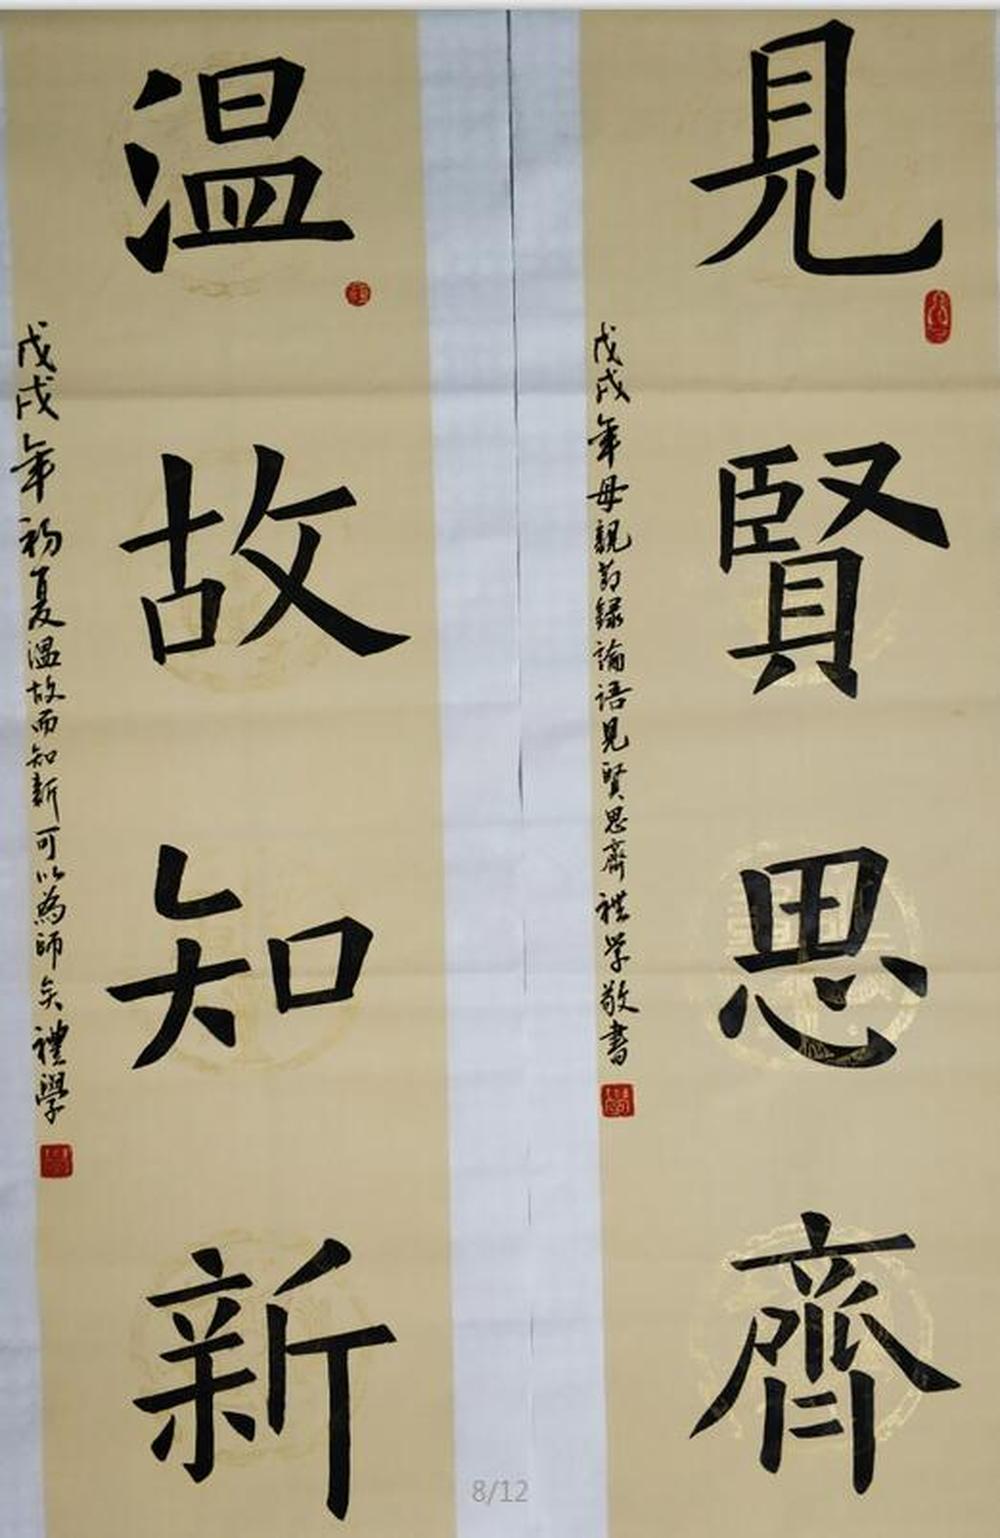 見賢思齊
戊戌年母親節錄論語見賢思齊禮学敬書
温故知新
戊戌年初夏温故而知新可以為師矣禮學
8/12